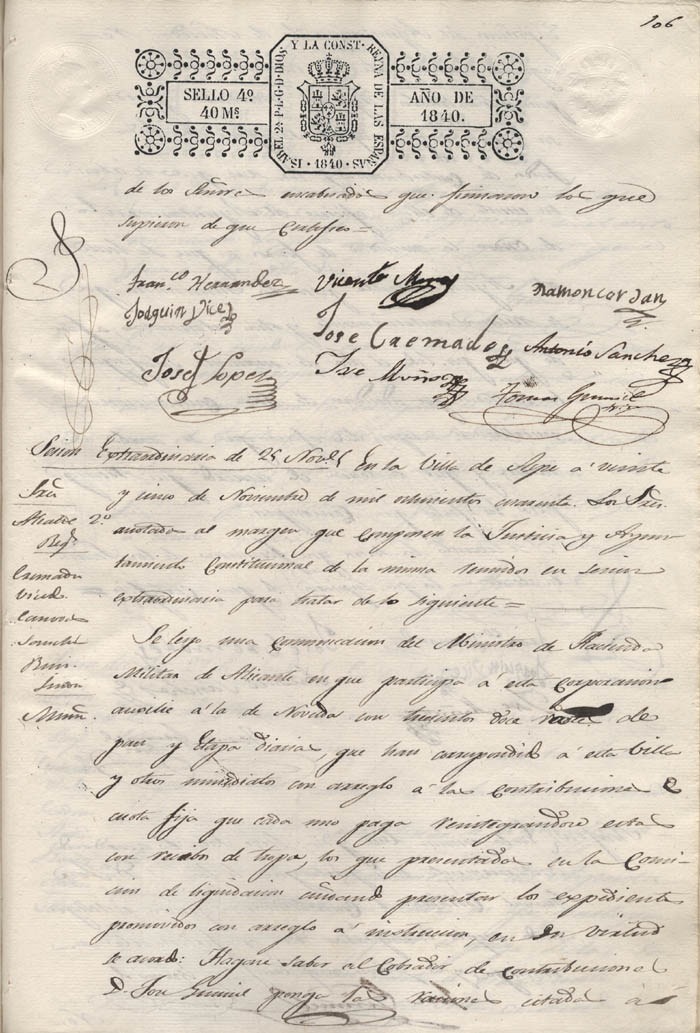 106
SELLO 4º
40 Ms
ISABEL 2ª P.L.G.D.DIOS Y LA CONST. REYNA DE LAS ESPAÑAS
1840
AÑO DE
1840.
de los Señores que firmaron los que
supieron de que Certifico=
Franco Hernandez
Vicente
Ramon Cordan
Joaquin Vicedo
Jose Cremades
Antonio Sanchez
Josef Lopez
Jse Muñoz
Tomas Gumiel
Sesion Extraordinaria de 25 Nove En la Villa de Aspe á veinte
y cinco de Noviembre de mil ochocientos cuarenta. Los Sres
anotados al margen que componen la Justicia y Ayun
tamiento Constitucional de la misma reunidos en sesion
extraordinaria para tratar de lo siguiente=
Sres
Alcalde 2º
Regs
Cremades
Vicedo
Sanchez
Muñ.
Se leyo una comunicacion del Ministro de Hacienda
Militar de Alicante en que participa á esta corporacion
auxilie á la de Novelda con trescientos doce de
pan y Etapa diarias, que han correspondido á esta Villa
y otros con arreglo á las contribuciones
cuota fija que cada uno paga reintegrandose estas
con recibos de tropa, los que presentados en la Comi
cion de liquidacion presentar los expedientes
promovidos con arreglo á instruccion, en su virtud
se acordó: Hagase saber al Cobrador de contribuciones
D. Jose Gumiel ponga las raciones citadas á